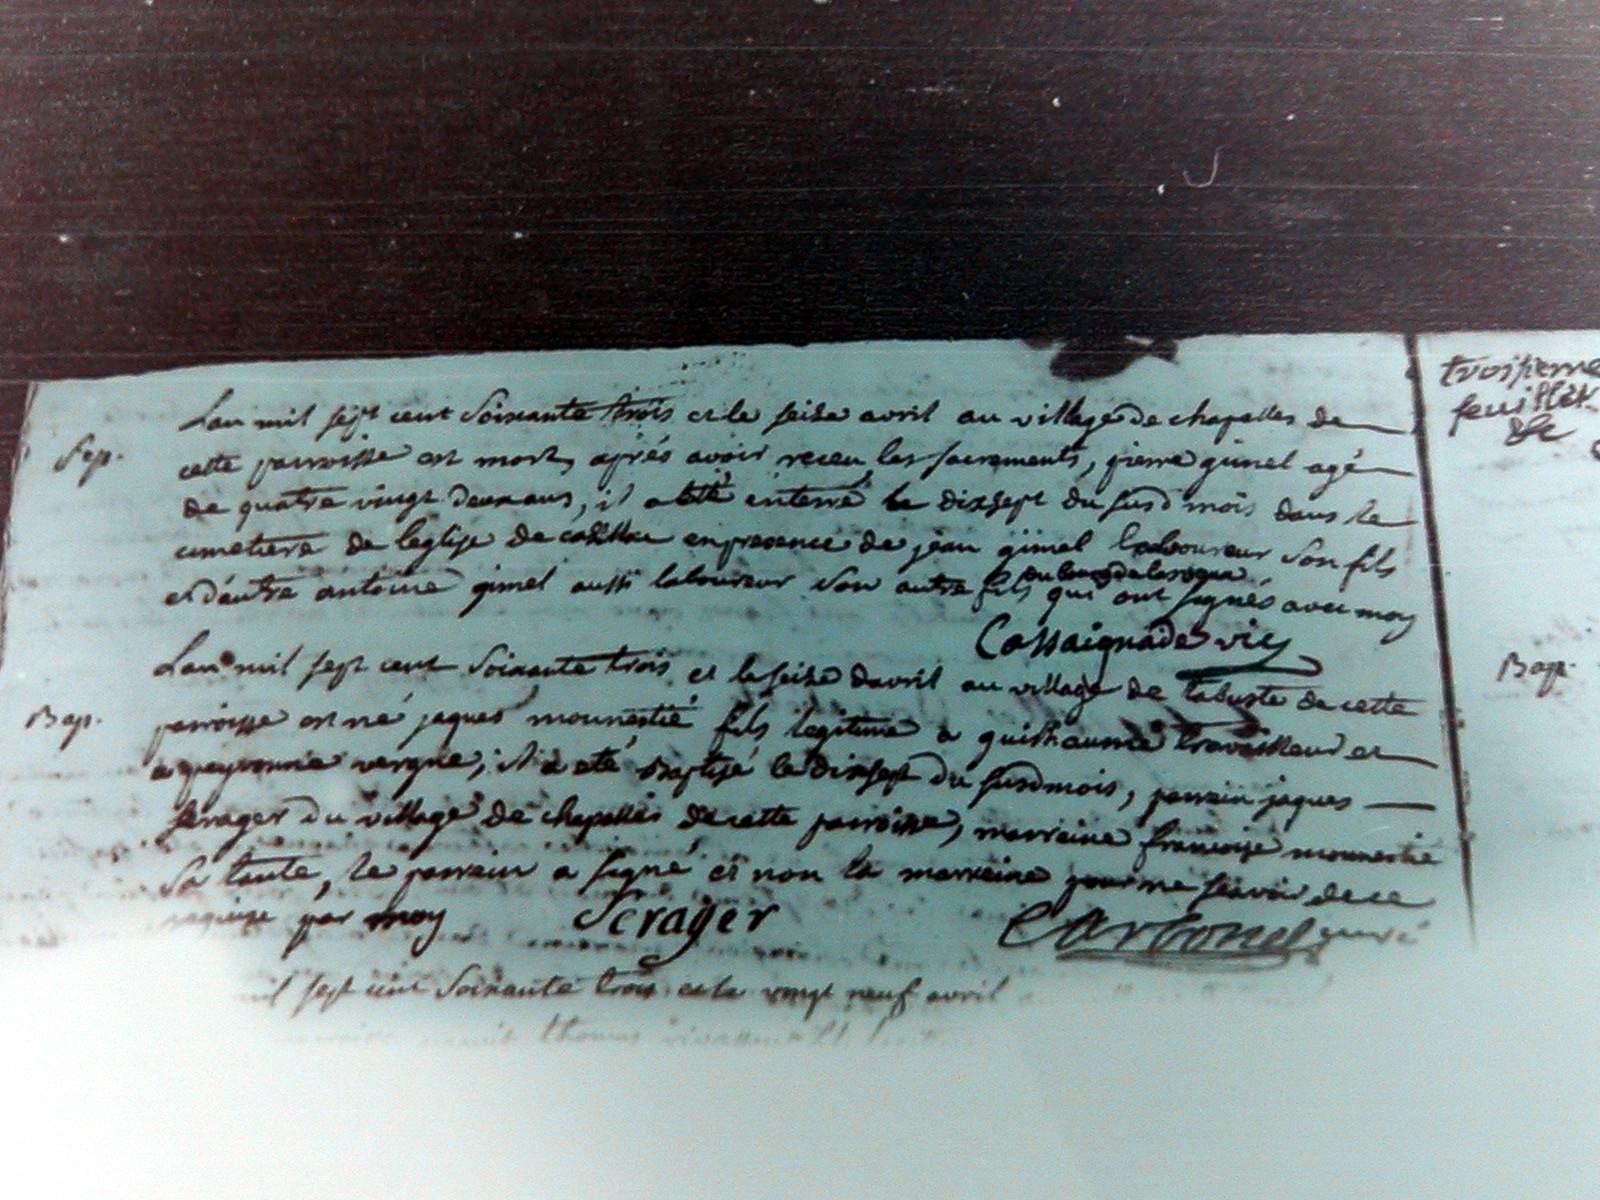 Sep.
Lan mil sept cent Soixante trois et le seize avril au village de chapelles de
cette parroisse est mort, aprés avoir receu les sacrements, pierre gimel agé
de quatre vingt deux ans, il a eté enterré le dixsept du susd mois dans le
cimetiere de leglise de en presence de jean gimel laboureur Son fils
et d'autre antoine gimel aussi laboureur Son autre fils qui ont signés avec moy
du bourg de laroque
Cassaignade vic
Bap.
Lan mil sept cent Soixante trois et le seize davril au village de labuste de cette
parroisse est né jaques mounestié fils legitime a guilhaume travailleur et
a peyronne vergne, il a eté Baptisé le dixsept du susd mois, parrain jaques
Serager du village de chapelles de cette parroisse, marraine françoise mounestié
Sa tante, le parrain a signé et non la marraine pour ne scavoir de ce
requise par moy Serager Carbonel curé
mil sept cent Soixante trois et le vingt neuf avril
thomas
troisieme
feuillet
&c
Bap.